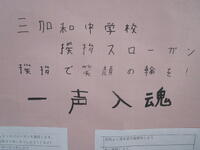 三加和中学校
挨拶スローガン
挨拶で笑顔の輪を!
一声入魂